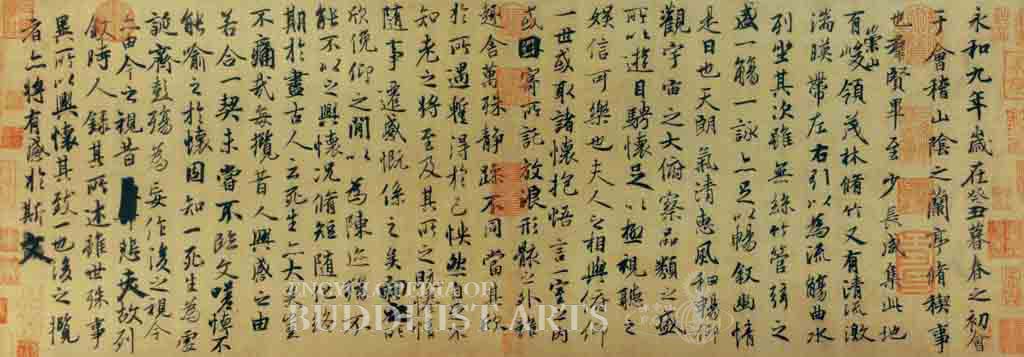 永和九年歲在癸丑暮春之初會
于會稽山陰之蘭亭脩稧事
也羣賢畢至少長咸集此地
有崇山峻領茂林脩竹又有清流激
湍暎帶左右引以為流觴曲水
列坐其次雖無絲竹管弦之
盛一觴一詠亦足以暢敘幽情
是日也天朗氣清惠風和暢仰
觀宇宙之大俯察品類之盛
所以遊目騁懷足以極視聽之
娛信可樂也夫人之相與俯仰
一世或取諸懷抱悟言一室之內
或因寄所託放浪形骸之外雖
趣舍萬殊靜躁不同當其欣
於所遇暫得於己快然自足不
知老之將至及其所之既惓情
隨事遷感慨係之矣向之所
欣俛仰之閒以為陳迹猶不
能不以之興懷況脩短隨化終
期於盡古人云死生亦大矣豈
不痛哉每攬昔人興感之由
若合一契未嘗不臨文嗟悼不
能喻之於懷固知一死生為虛
誕齊彭殤為妄作後之視今
亦由今之視昔悲夫故列
敘時人錄其所述雖世殊事
異所以興懷其致一也後之攬
者亦將有感於斯文
ENCYCLOPEDIA OF
BUDDHIST ARTS